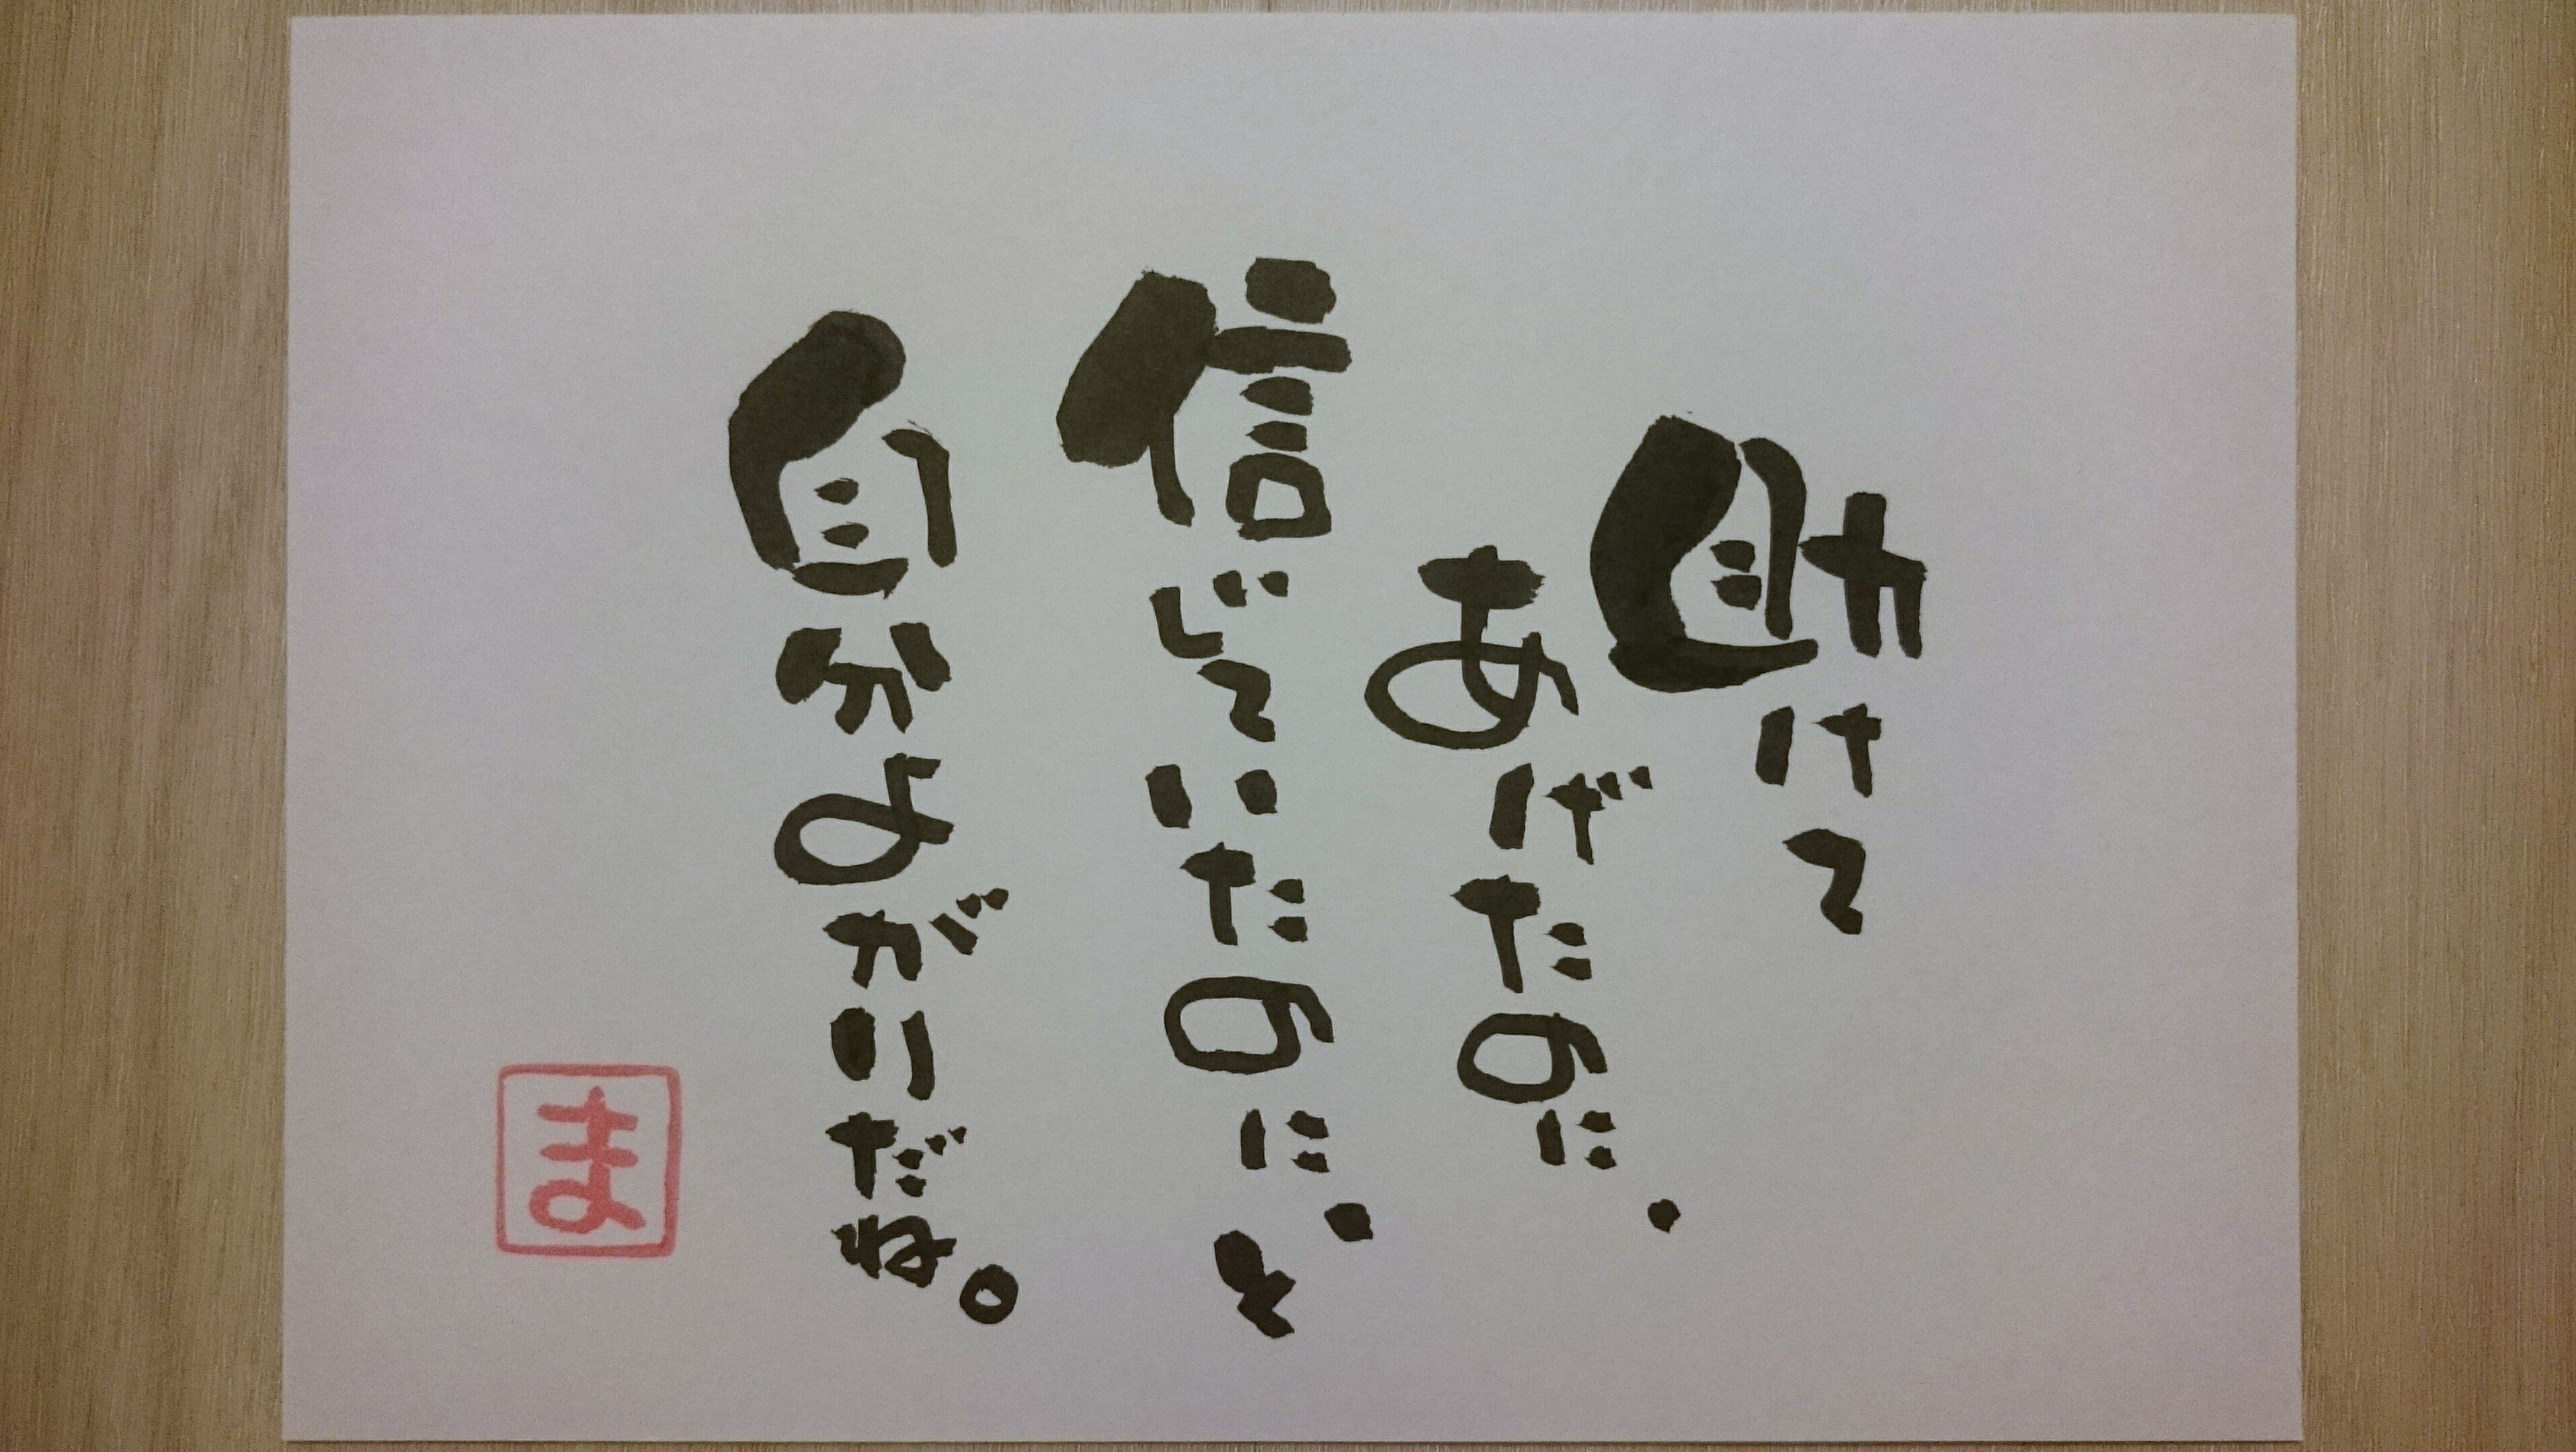 助けて
あげたのに・
信じていたのに・と
自分よがりだね。
ま